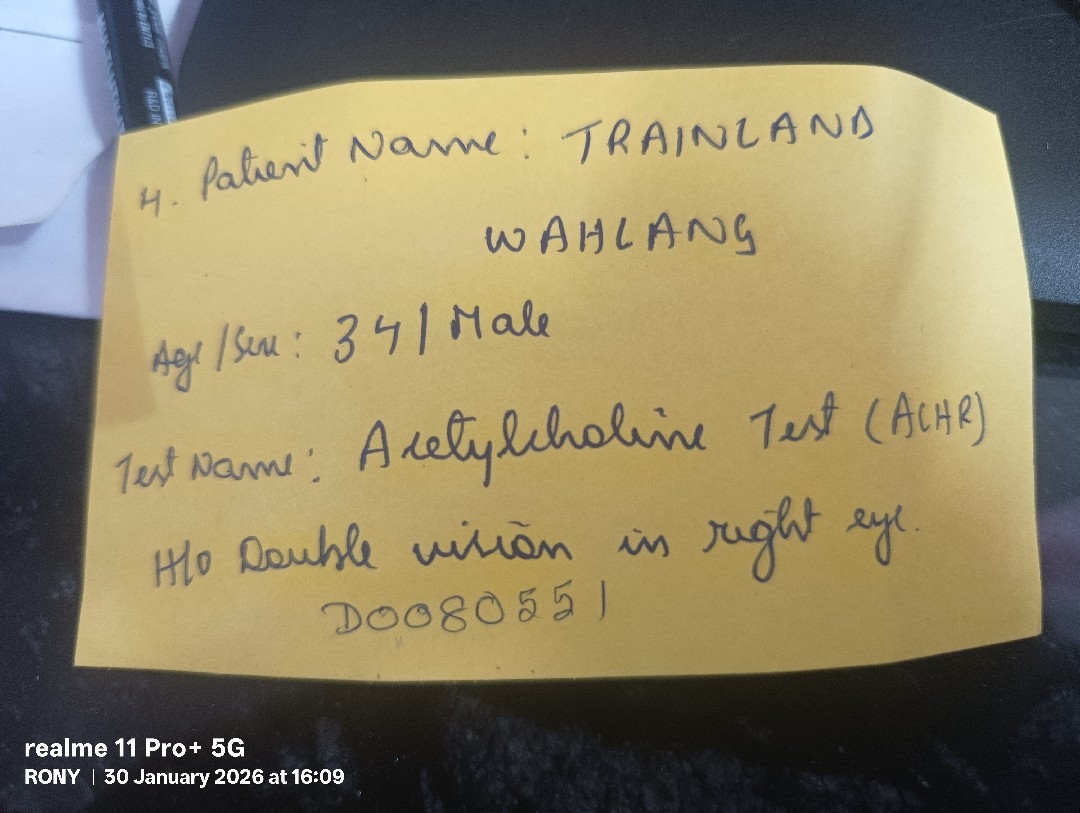 4. Patient Name: TRAINLAND
WAHLANG
Age/Sex: 34/Male
Test Name: Acetylcholine Test (ACHR)
H/o Double vision in right eye.
D0080551
realme 11 Pro+ 5G
RONY | 30 January 2026 at 16:09